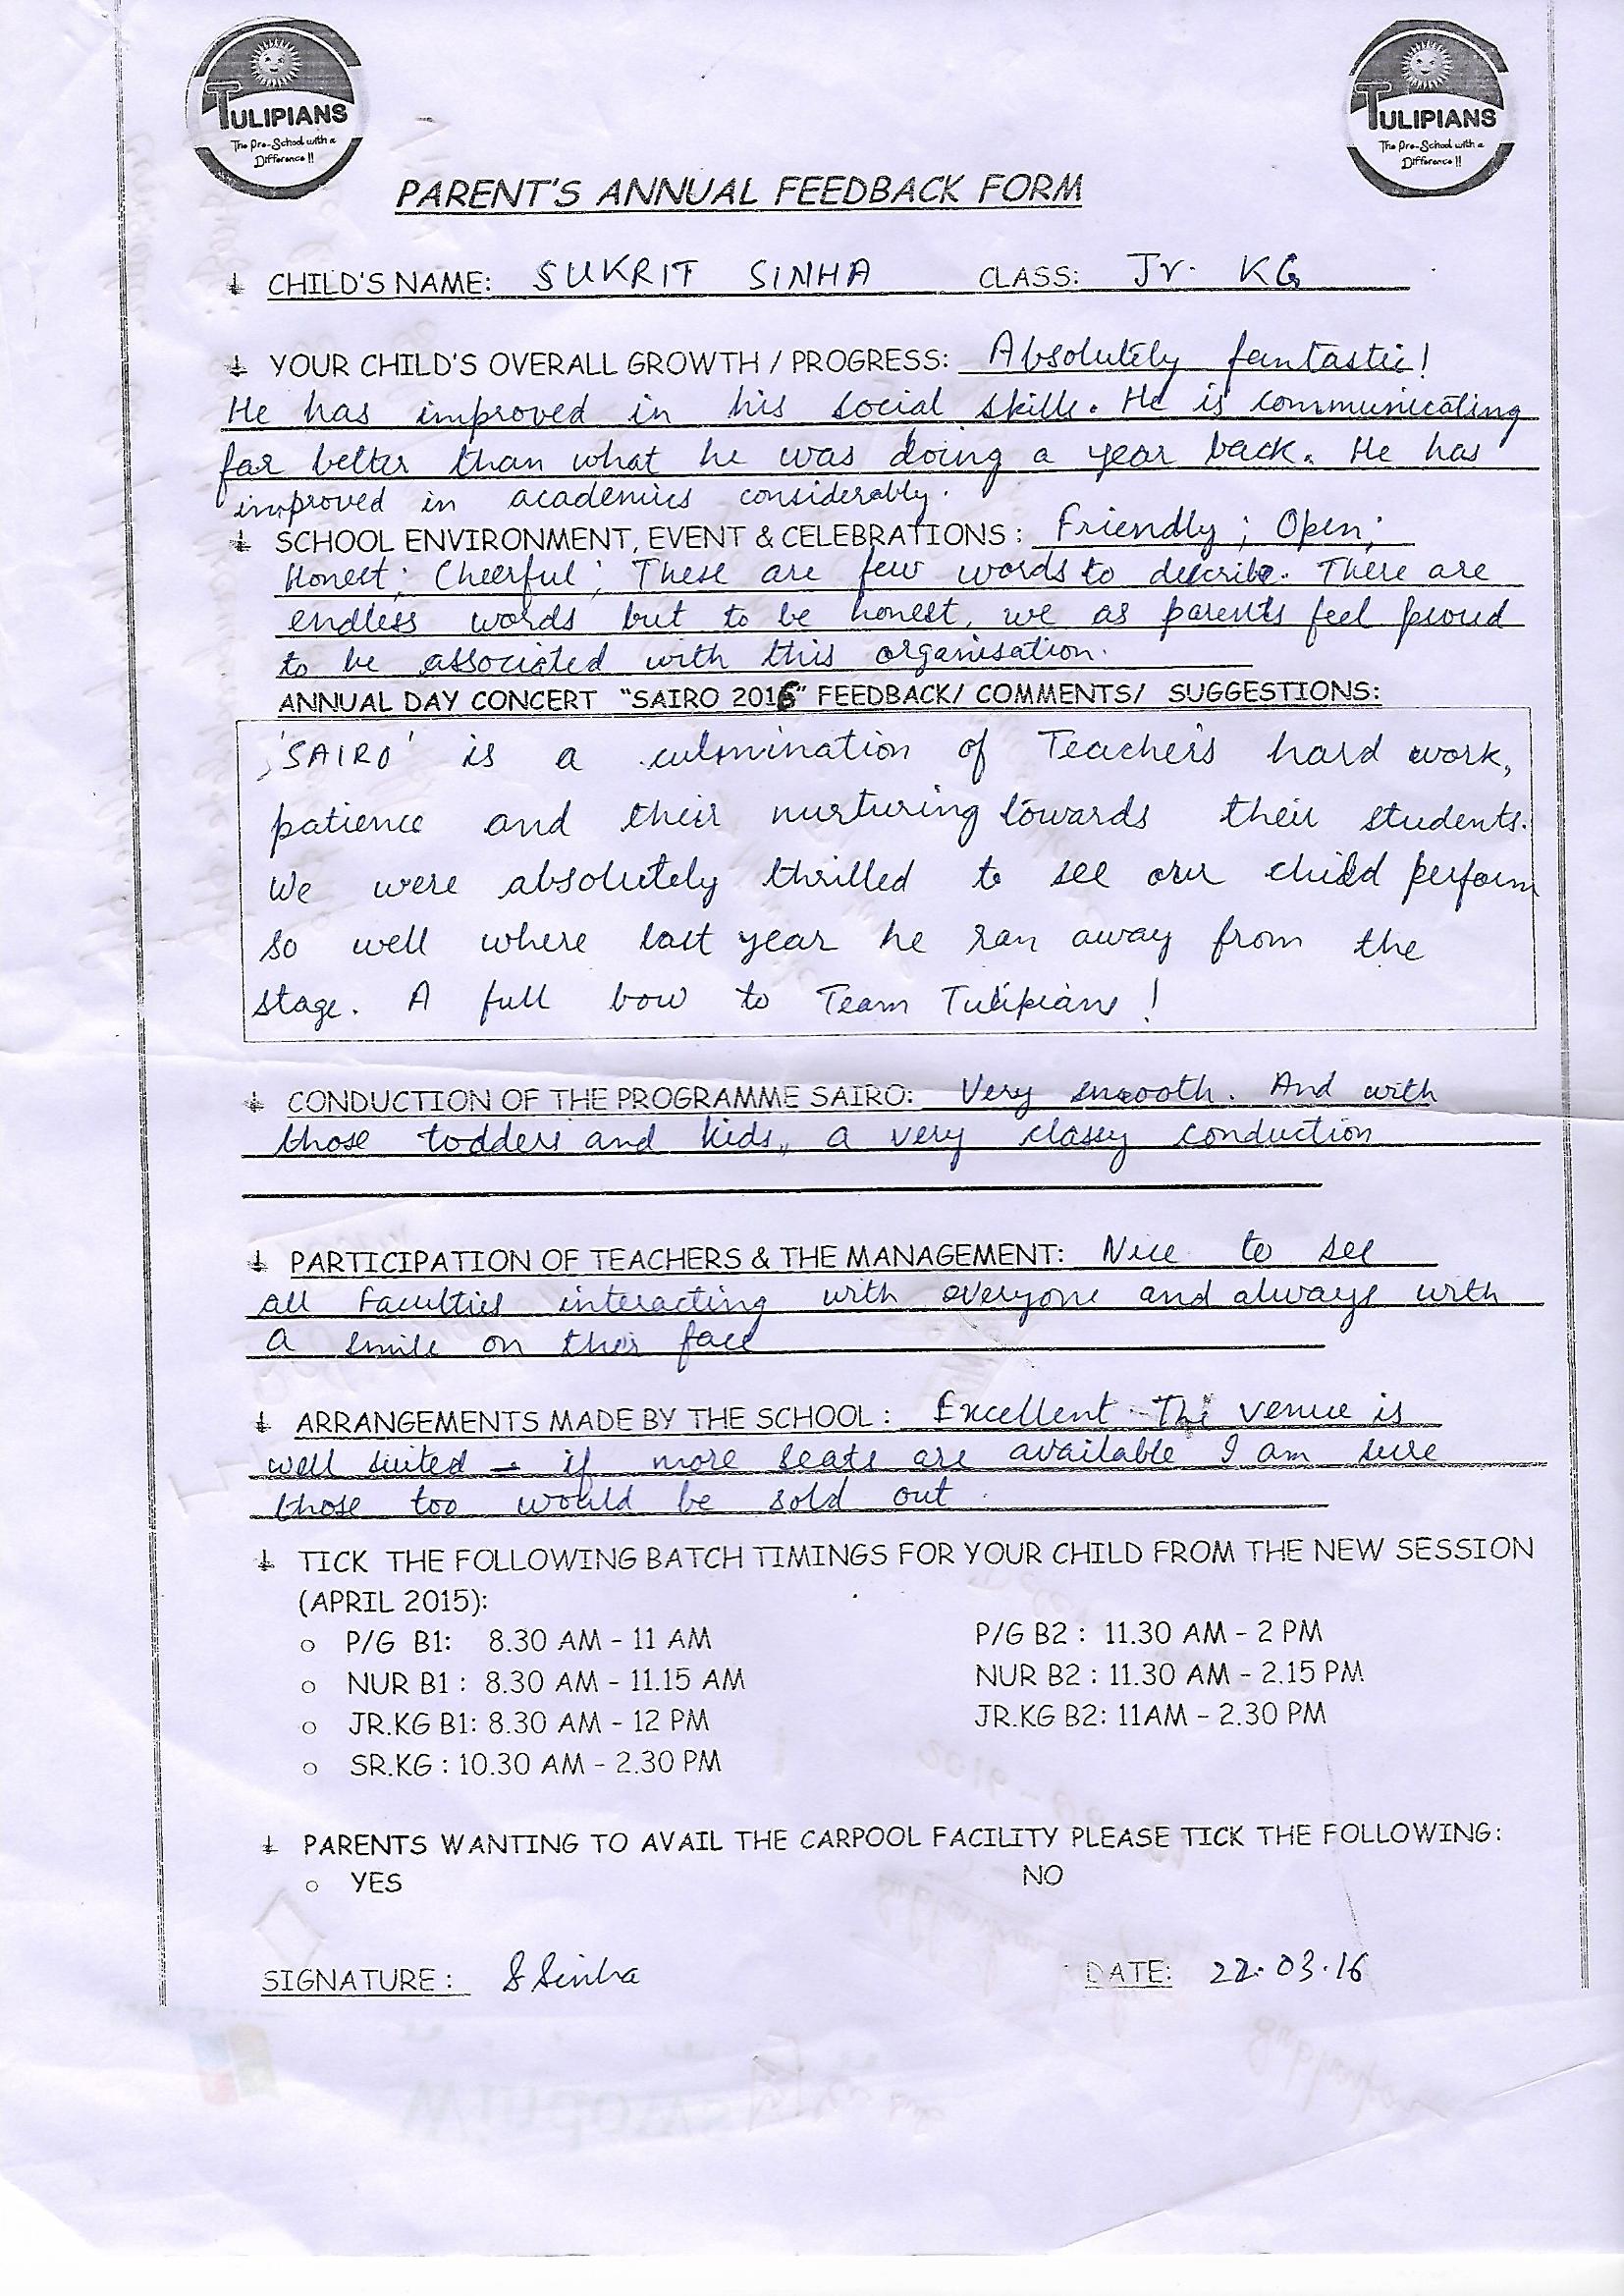 TULIPIANS
The Pre-School with a
Difference !!
TULIPIANS
The Pre-School with a
Difference !!
PARENT'S ANNUAL FEEDBACK FORM
CHILD'S NAME: SUKRIT SINHA CLASS: Jr. KG
YOUR CHILD'S OVERALL GROWTH / PROGRESS: Absolutely fantastic!
He has improved in his social skills. He is communicating
far better than what he was doing a year back. He has
improved in academics considerably.
SCHOOL ENVIRONMENT, EVENT & CELEBRATIONS : Friendly ; Open;
Honest; Cheerful; These are few words to describe. There are
endless words but to be honest, we as parents feel proud
to be associated with this organisation.
ANNUAL DAY CONCERT "SAIRO 2016" FEEDBACK/ COMMENTS/ SUGGESTIONS:
'SAIRO' is a culmination of Teachers hard work,
patience and their nurturing towards their students.
We were absolutely thrilled to see our child perform
so well where last year he ran away from the
stage. A full bow to Team Tulipians !
CONDUCTION OF THE PROGRAMME SAIRO: Very smooth. And with
those todders and kids, a very classy conduction
PARTICIPATION OF TEACHERS & THE MANAGEMENT: Nice to see
all Faculties interacting with everyone and always with
a smile on their face
ARRANGEMENTS MADE BY THE SCHOOL : Excellent. The venue is
well suited - if more seats are available I am sure
those too would be sold out.
TICK THE FOLLOWING BATCH TIMINGS FOR YOUR CHILD FROM THE NEW SESSION
(APRIL 2015):
P/G B1: 8.30 AM - 11 AM P/G B2 : 11.30 AM - 2 PM
NUR B1 : 8.30 AM - 11.15 AM NUR B2 : 11.30 AM - 2.15 PM
JR.KG B1: 8.30 AM - 12 PM JR.KG B2: 11AM - 2.30 PM
SR.KG : 10.30 AM - 2.30 PM
PARENTS WANTING TO AVAIL THE CARPOOL FACILITY PLEASE TICK THE FOLLOWING:
YES NO
SIGNATURE : S Sinha DATE: 22.03.16